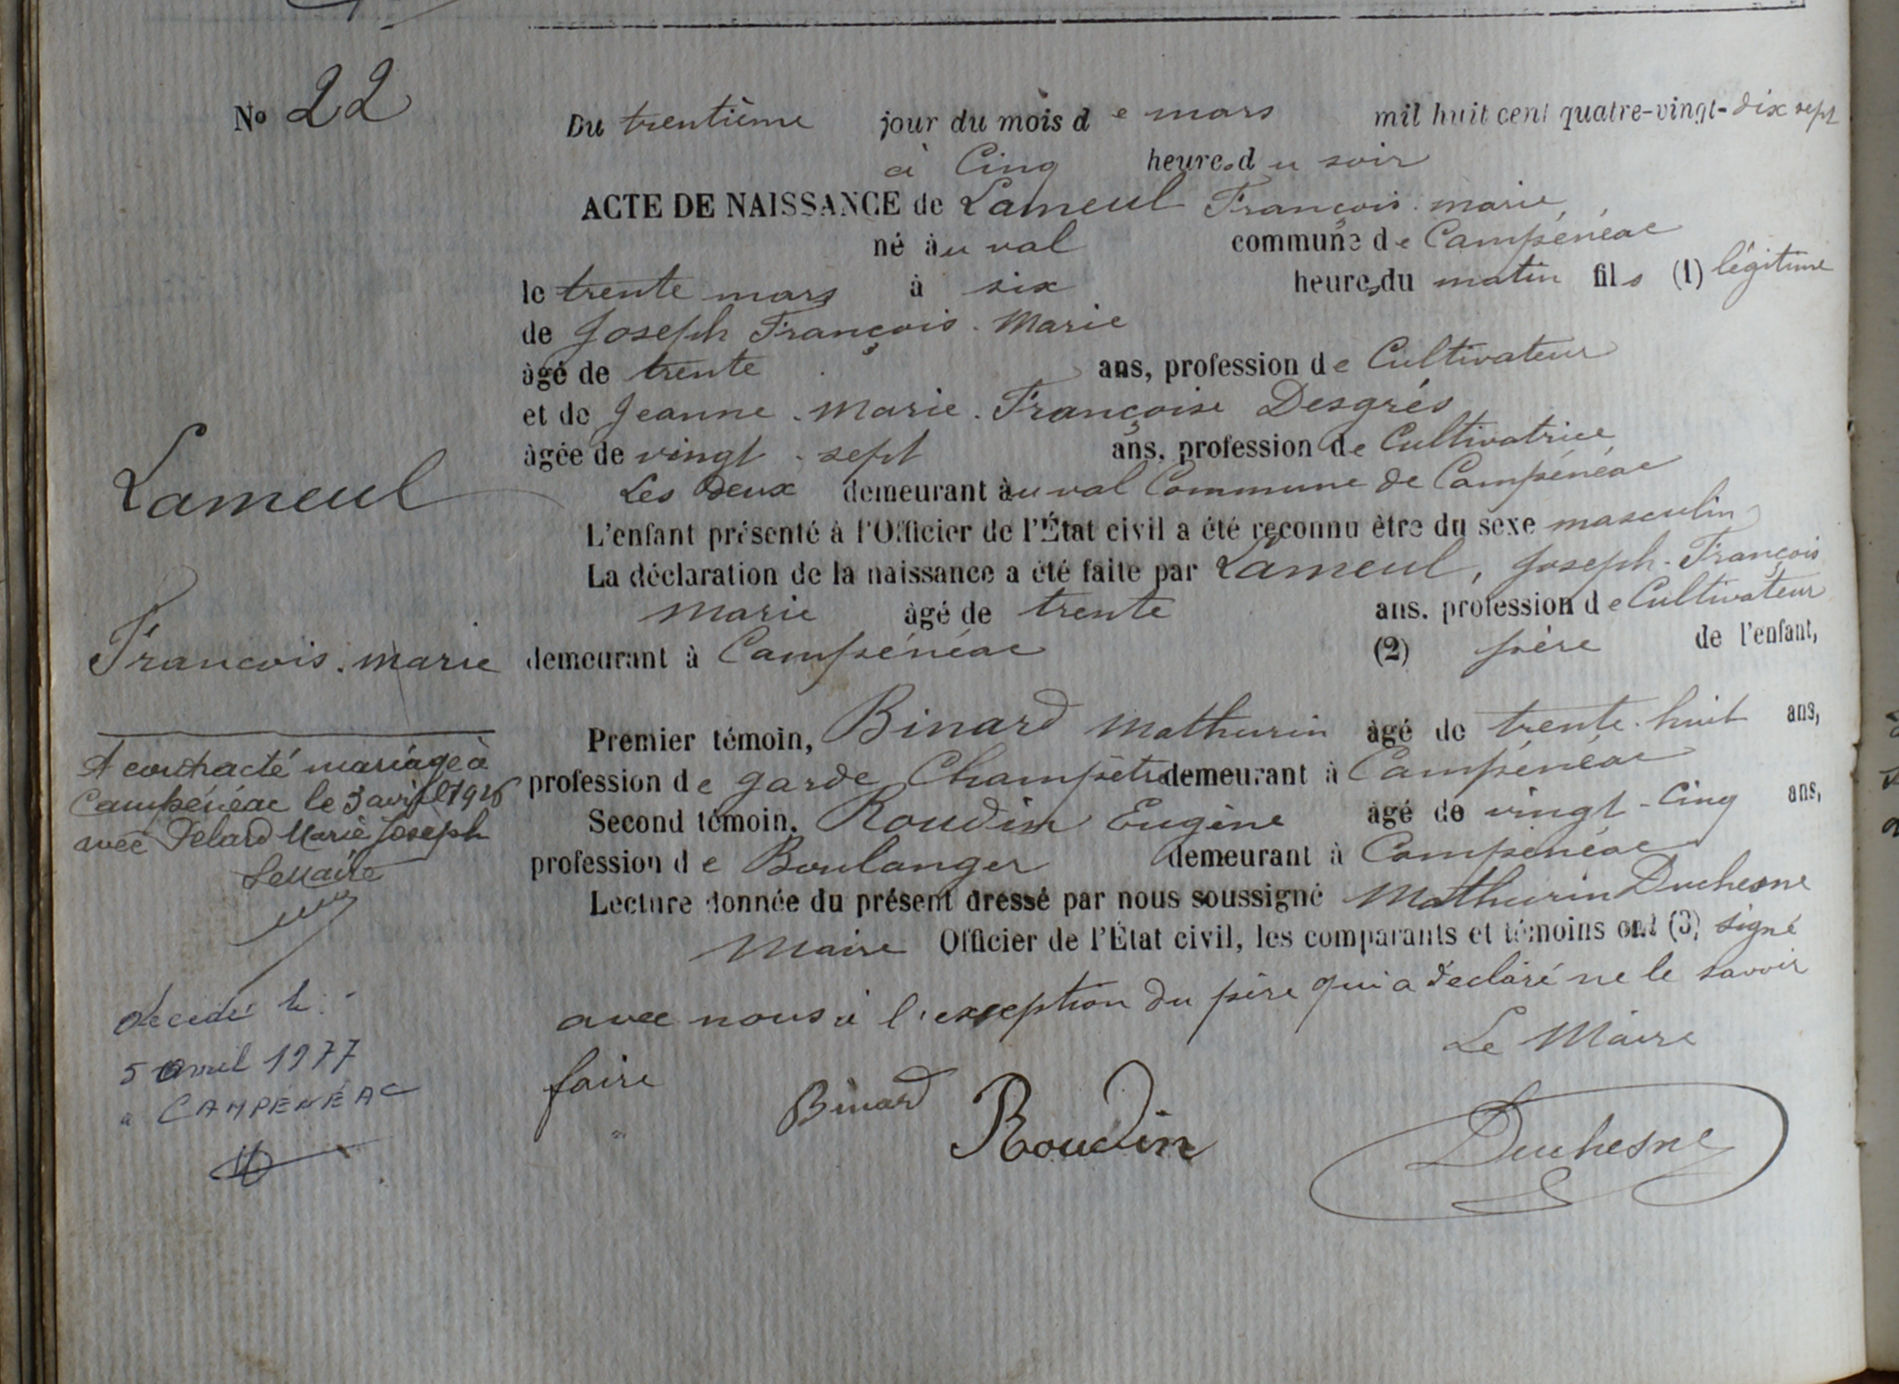 No 22
Du trentième jour du mois de mars mil huit cent quatre-vingt-dix sept
à Cinq heures du soir
ACTE DE NAISSANCE de Lameul François. marie
né àu val commune de Campénéac
le trente mars à six heures du matin fils (1) légitime
de Joseph François. Marie
âgé de trente ans, profession de Cultivateur
et de Jeanne. Marie. Françoise Desgrés
âgée de vingt-sept ans, profession de Cultivatrice
Les Deux demeurant àu val Commune de Campénéac
L'enfant présenté à l'Officier de l'État civil a été reconnu être du sexe masculin
La déclaration de la naissance a été faite par Lameul, Joseph-François
Marie âgé de trente ans, profession de Cultivateur
demeurant à Campénéac (2) père de l'enfant,
Premier témoin, Binard Mathurin âgé de trente-huit ans,
profession de garde Champêtre demeurant à Campénéac
Second témoin, Roudin Eugène âgé de vingt-Cinq ans,
profession de Boulanger demeurant à Campénéac
Lecture donnée du présent dressé par nous soussigné Mathurin Duchesne
Maire Officier de l'État civil, les comparants et témoins ont (3) signé
avec nous à l'exception du père qui a déclaré ne le savoir
faire
Le Maire
Binard Roudin Duchesne
Lameul
Francois. marie
A contracté mariage à
Campénéac le 3 avril
avec Marie Joseph
Le Maire
décédé le
5 avril 1977
à CAMPÉNÉAC